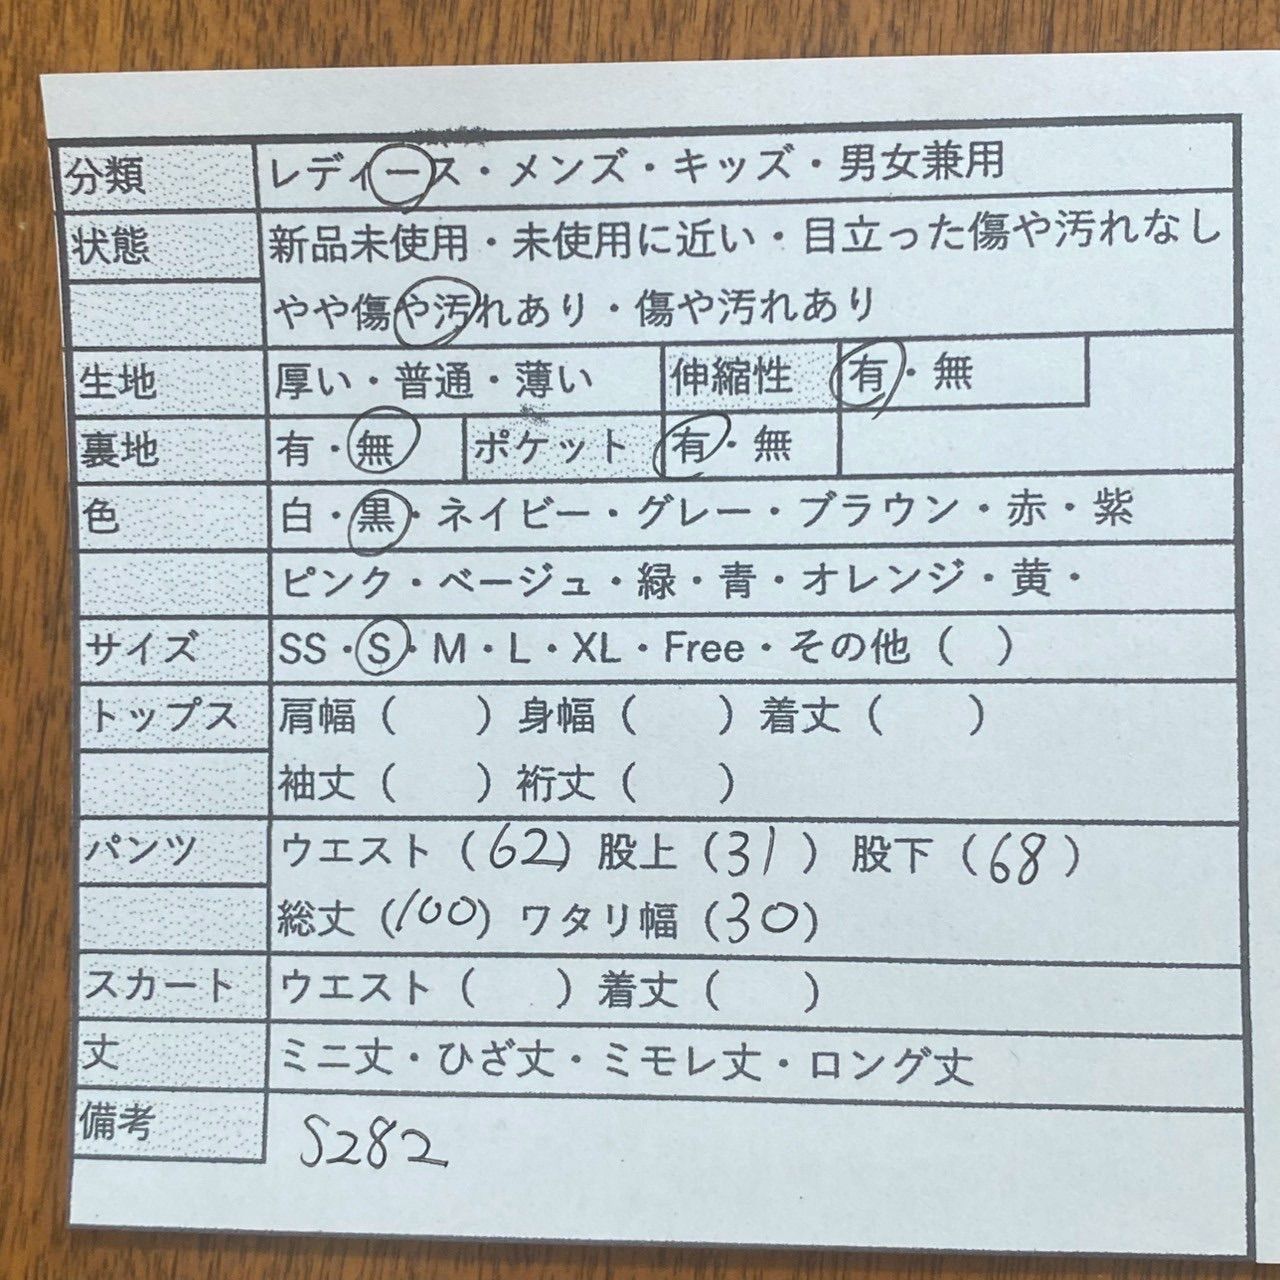 分類 レディース・メンズ・キッズ・男女兼用
状態 新品未使用・未使用に近い・目立った傷や汚れなし
やや傷や汚れあり・傷や汚れあり
生地 厚い・普通・薄い 伸縮性 有・無
裏地 有・無 ポケット 有・無
色 白・黒・ネイビー・グレー・ブラウン・赤・紫
ピンク・ベージュ・緑・青・オレンジ・黄・
サイズ SS・S・M・L・XL・Free・その他（ ）
トップス 肩幅（ ）身幅（ ）着丈（ ）
袖丈（ ）裄丈（ ）
パンツ ウエスト（62）股上（31）股下（68）
総丈（100）ワタリ幅（30）
スカート ウエスト（ ）着丈（ ）
丈 ミニ丈・ひざ丈・ミモレ丈・ロング丈
備考 S282